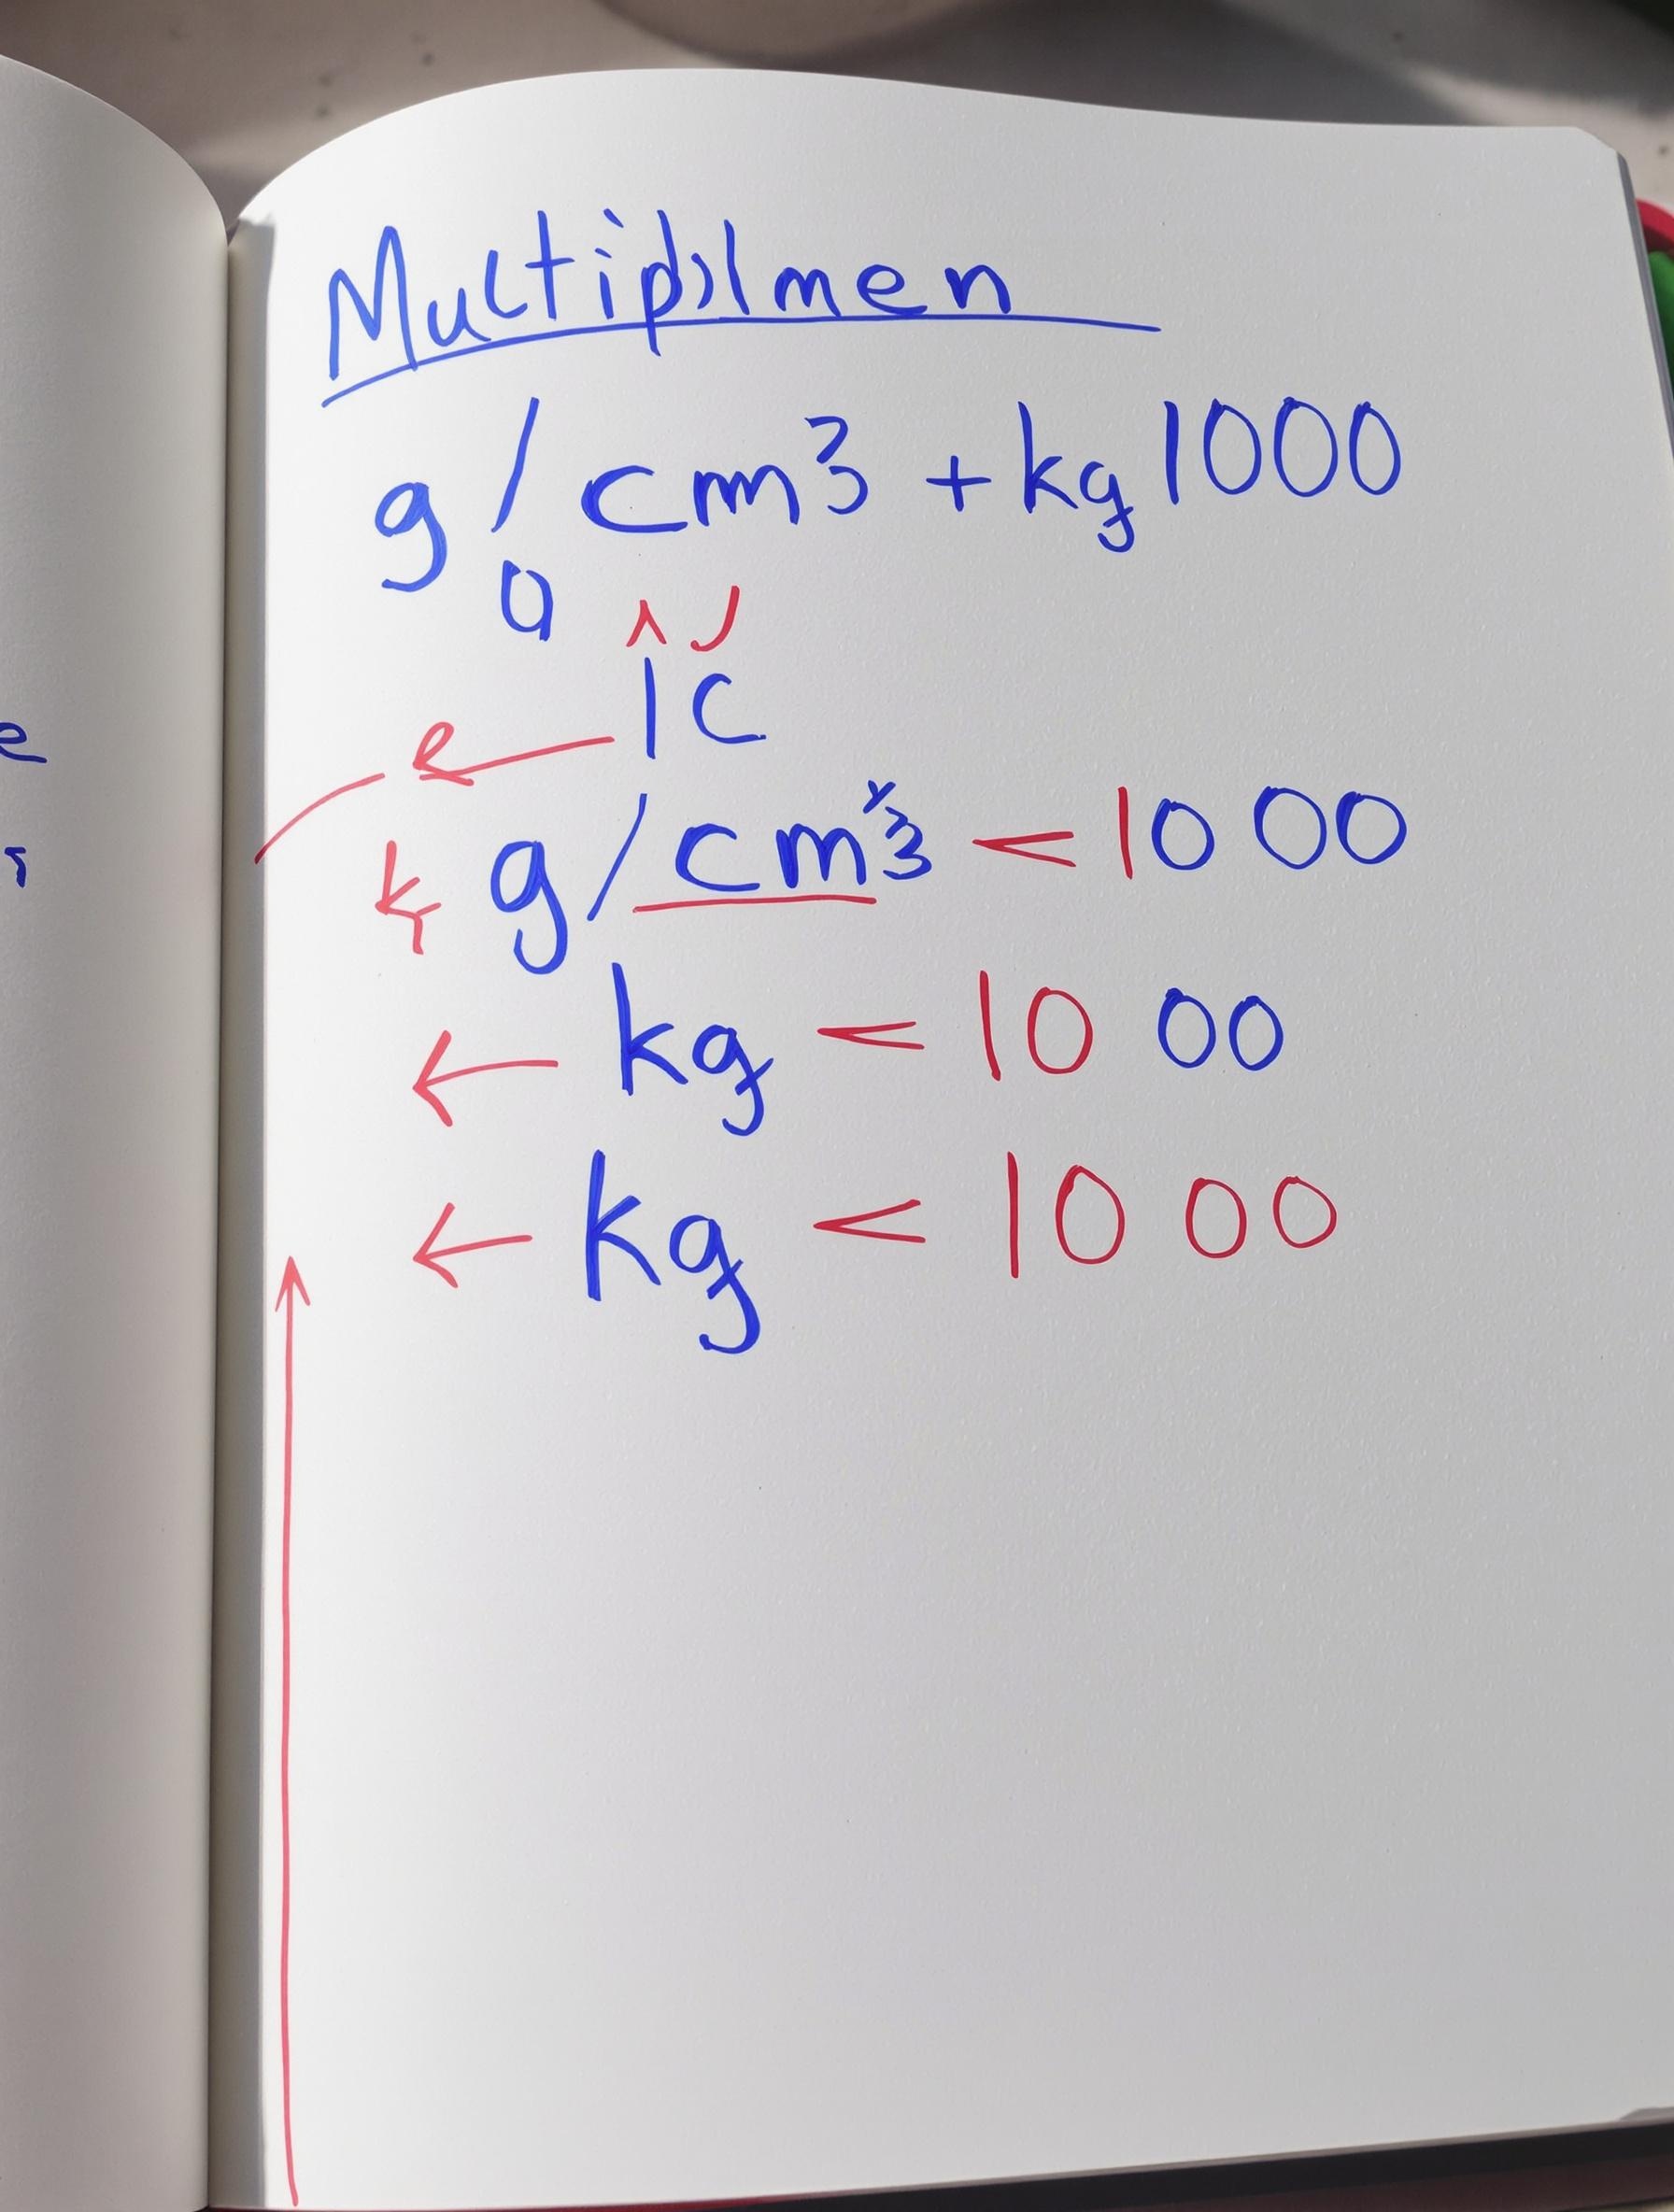 Multiplmen
g/cm3 + kg 1000
a
1c
e
kg/cm3 < 1000
← kg < 1000
← kg < 1000